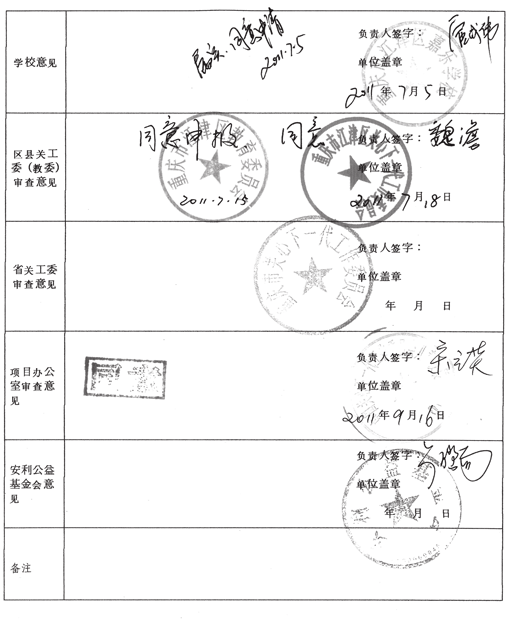 学校意见
同意申请
2011.7.5
负责人签字：
单位盖章
2011年7月5日
区县关工委（教委）审查意见
同意申报
重庆市江津区教育委员会
2011.7.15
同意
重庆市江津区关心下一代工作委员会
负责人签字：
单位盖章
2011年7月18日
省关工委审查意见
重庆市关心下一代工作委员会
负责人签字：
单位盖章
年 月 日
项目办公室审查意见
负责人签字：
单位盖章
2011年9月16日
安利公益基金会意见
负责人签字：
单位盖章
年 月 日
备注